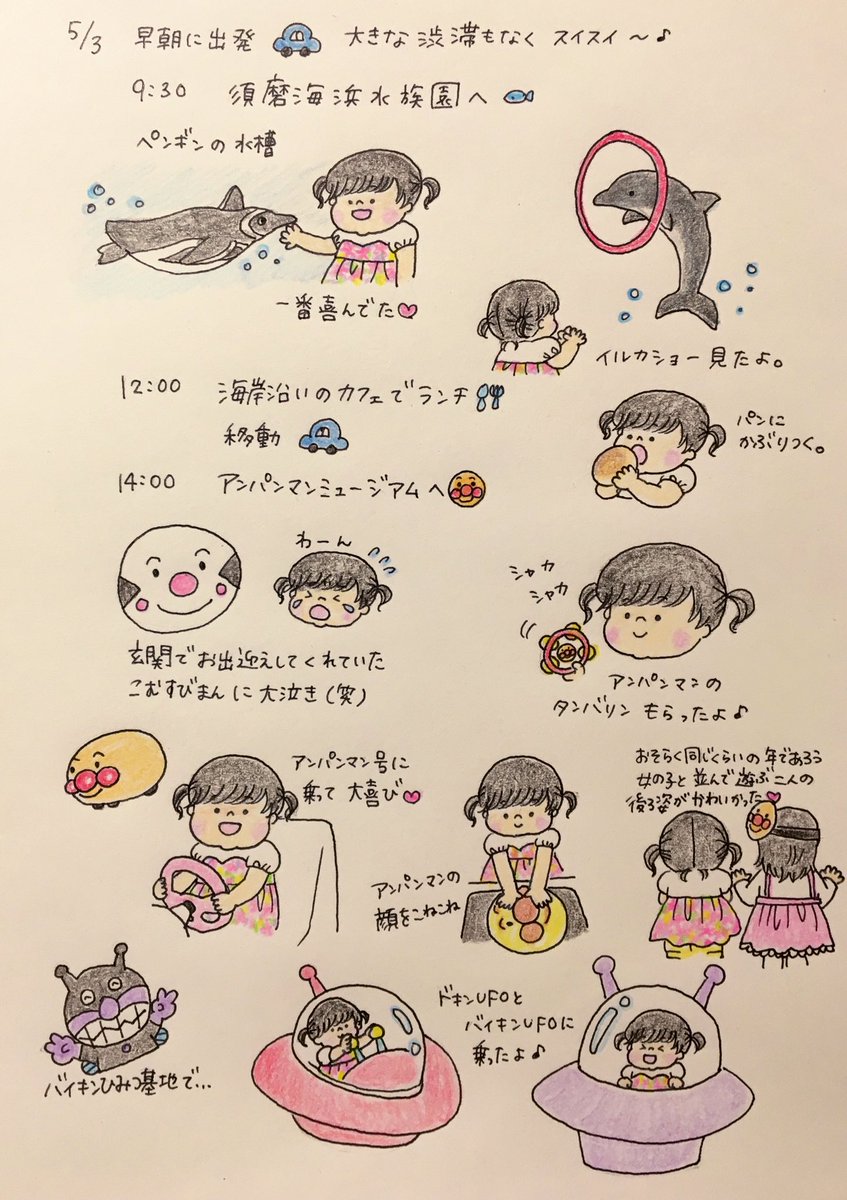 5/3 早朝に出発 大きな渋滞もなく スイスイ～♪
9:30 須磨海浜水族園へ
ペンギンの水槽
一番喜んでた
イルカショー見たよ。
12:00 海岸沿いのカフェでランチ
移動
パンに
かぶりつく。
14:00 アンパンマンミュージアムへ
わーん
玄関でお出迎えしてくれていた
こむすびまんに大泣き(笑)
シャカ
シャカ
アンパンマンの
タンバリンもらったよ♪
アンパンマン号に
乗って大喜び
アンパンマンの
顔をこねこね
おそらく同じくらいの年であろう
女の子と並んで遊ぶ二人の
後ろ姿がかわいかった
バイキンひみつ基地で…
ドキンUFOと
バイキンUFOに
乗ったよ♪